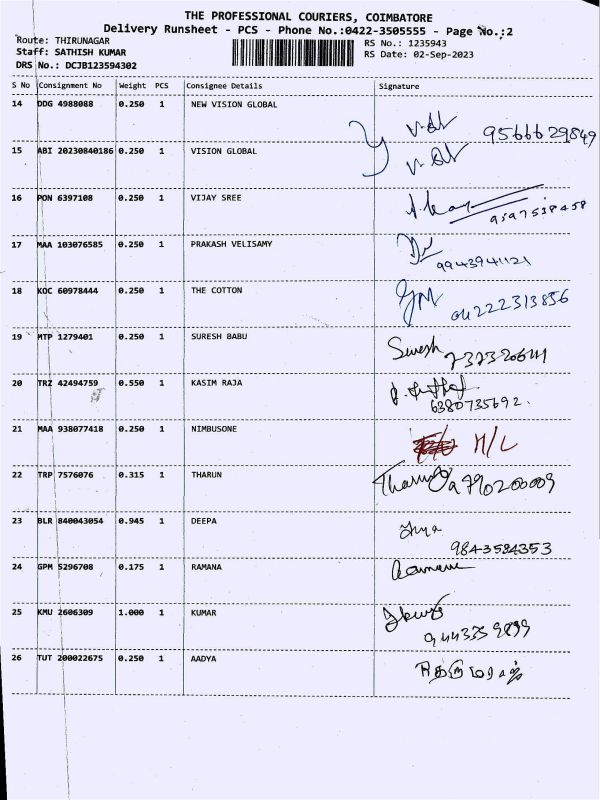 THE PROFESSIONAL COURIERS, COIMBATORE
Delivery Runsheet - PCS - Phone No.:0422-3505555 - Page No.:2
Route: THIRUNAGAR
RS No.: 1235943
Staff: SATHISH KUMAR
RS Date: 02-Sep-2023
DRS No.: DCJB123594302
S No Consignment No Weight PCS Consignee Details Signature
14 DDG 4988088 0.250 1 NEW VISION GLOBAL
9566629849
15 ABI 20230840186 0.250 1 VISION GLOBAL
16 PON 6397108 0.250 1 VIJAY SREE
9597538458
17 MAA 103076585 0.250 1 PRAKASH VELISAMY
9943941121
18 KOC 60978444 0.250 1 THE COTTON
04222313856
19 MTP 1279401 0.250 1 SURESH BABU Suresh
20 TRZ 42494759 0.550 1 KASIM RAJA
6380735692.
21 MAA 938077418 0.250 1 NIMBUSONE M/L
22 TRP 7576076 0.315 1 THARUN Tharun
23 BLR 840043054 0.945 1 DEEPA
9843584353
24 GPM 5296708 0.175 1 RAMANA
25 KMU 2606309 1.000 1 KUMAR
9443359899
26 TUT 200022675 0.250 1 AADYA